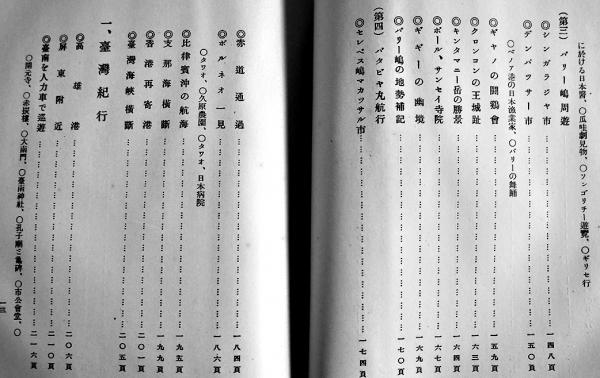 に於ける日本醫、〇瓜哇劇見物、〇ソンゴリチー遊覽、〇ギリセ行
(第三) バリー嶋周遊
◎シンガラジャ市……一四八頁
◎デンパッサー市……一五〇頁
〇ベノア港の日本漁業家、〇バリーの舞踊
◎ギャノの鬪鷄會……一五九頁
◎クロンコンの王城趾……一六三頁
◎キンタマニー岳の勝景……一六四頁
◎ボール、サンセイ寺院……一六七頁
◎ギギーの幽境……一六九頁
◎バリー嶋の地勢補記……一七〇頁
(第四) バタビヤ丸航行
◎セレベス嶋マカッサル市……一七四頁
◎赤道通過……一八四頁
◎ボルネオ一見……一八六頁
〇タワオ、〇久原農園、〇タワオ、日本病院
◎比律賓沖の航海……一九五頁
◎支那海横斷……一九九頁
◎香港再寄港……二〇一頁
◎臺灣海峽横斷……二〇五頁
一、臺灣紀行
◎高雄港……二〇六頁
◎屏東附近……二一〇頁
◎臺南を人力車で巡遊……二一六頁
〇開元寺、〇赤崁樓、〇大南門、〇臺南神社、〇孔子廟ミ龜碑、〇市公會堂、〇
一三